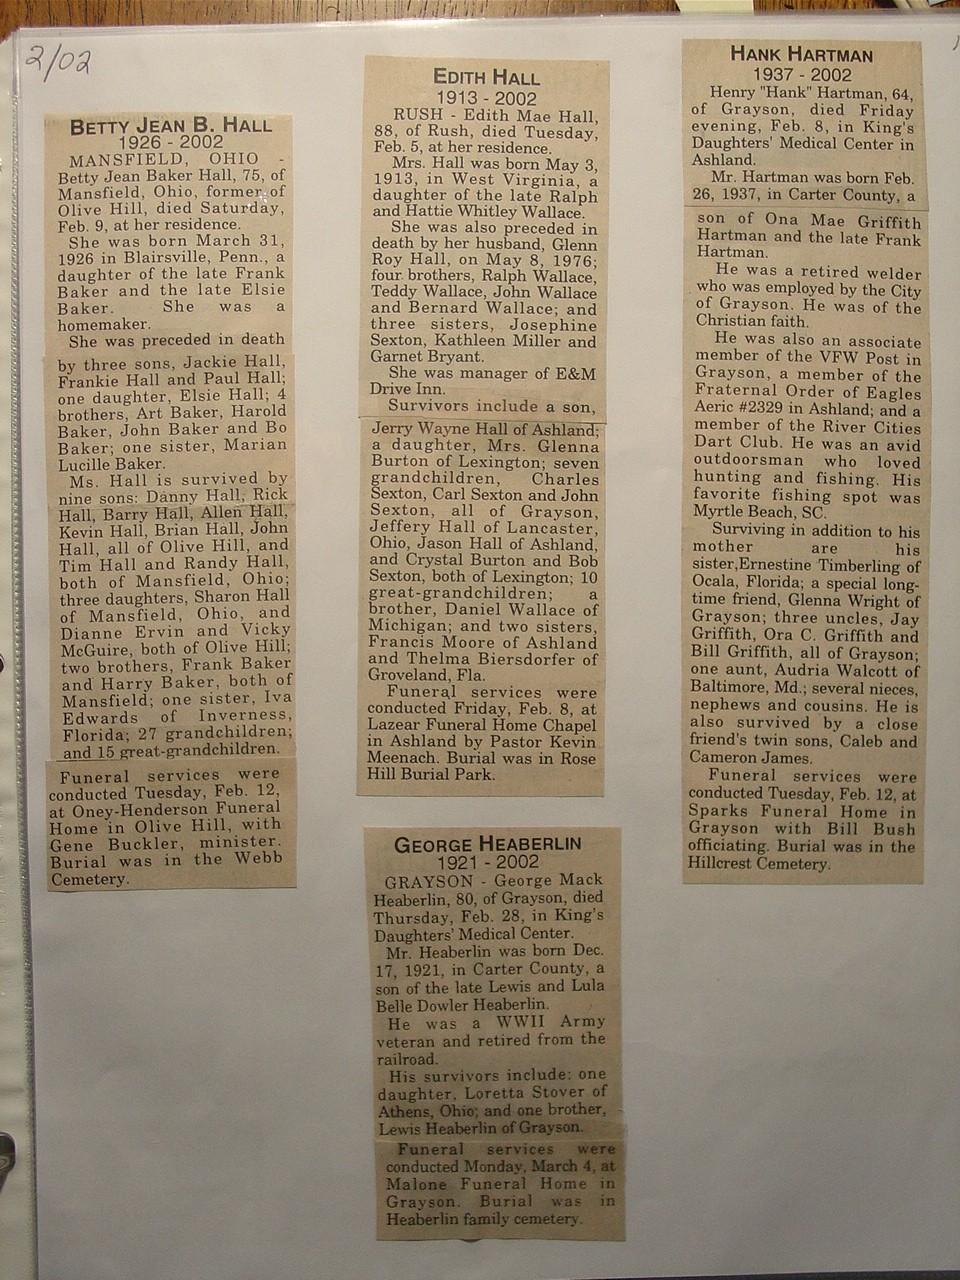 2/02
BETTY JEAN B. HALL
1926 - 2002
MANSFIELD, OHIO -
Betty Jean Baker Hall, 75, of
Mansfield, Ohio, former of
Olive Hill, died Saturday,
Feb. 9, at her residence.
She was born March 31,
1926 in Blairsville, Penn., a
daughter of the late Frank
Baker and the late Elsie
Baker. She was a
homemaker.
She was preceded in death
by three sons, Jackie Hall,
Frankie Hall and Paul Hall;
one daughter, Elsie Hall; 4
brothers, Art Baker, Harold
Baker, John Baker and Bo
Baker; one sister, Marian
Lucille Baker.
Ms. Hall is survived by
nine sons: Danny Hall, Rick
Hall, Barry Hall, Allen Hall,
Kevin Hall, Brian Hall, John
Hall, all of Olive Hill, and
Tim Hall and Randy Hall,
both of Mansfield, Ohio;
three daughters, Sharon Hall
of Mansfield, Ohio, and
Dianne Ervin and Vicky
McGuire, both of Olive Hill;
two brothers, Frank Baker
and Harry Baker, both of
Mansfield; one sister, Iva
Edwards of Inverness,
Florida; 27 grandchildren;
and 15 great-grandchildren.
Funeral services were
conducted Tuesday, Feb. 12,
at Oney-Henderson Funeral
Home in Olive Hill, with
Gene Buckler, minister.
Burial was in the Webb
Cemetery.
EDITH HALL
1913 - 2002
RUSH - Edith Mae Hall,
88, of Rush, died Tuesday,
Feb. 5, at her residence.
Mrs. Hall was born May 3,
1913, in West Virginia, a
daughter of the late Ralph
and Hattie Whitley Wallace.
She was also preceded in
death by her husband, Glenn
Roy Hall, on May 8, 1976;
four brothers, Ralph Wallace,
Teddy Wallace, John Wallace
and Bernard Wallace; and
three sisters, Josephine
Sexton, Kathleen Miller and
Garnet Bryant.
She was manager of E&M
Drive Inn.
Survivors include a son,
Jerry Wayne Hall of Ashland;
a daughter, Mrs. Glenna
Burton of Lexington; seven
grandchildren, Charles
Sexton, Carl Sexton and John
Sexton, all of Grayson,
Jeffery Hall of Lancaster,
Ohio, Jason Hall of Ashland,
and Crystal Burton and Bob
Sexton, both of Lexington; 10
great-grandchildren; a
brother, Daniel Wallace of
Michigan; and two sisters,
Francis Moore of Ashland
and Thelma Biersdorfer of
Groveland, Fla.
Funeral services were
conducted Friday, Feb. 8, at
Lazear Funeral Home Chapel
in Ashland by Pastor Kevin
Meenach. Burial was in Rose
Hill Burial Park.
GEORGE HEABERLIN
1921 - 2002
GRAYSON - George Mack
Heaberlin, 80, of Grayson, died
Thursday, Feb. 28, in King's
Daughters' Medical Center.
Mr. Heaberlin was born Dec.
17, 1921, in Carter County, a
son of the late Lewis and Lula
Belle Dowler Heaberlin.
He was a WWII Army
veteran and retired from the
railroad.
His survivors include: one
daughter, Loretta Stover of
Athens, Ohio; and one brother,
Lewis Heaberlin of Grayson.
Funeral services were
conducted Monday, March 4, at
Malone Funeral Home in
Grayson. Burial was in
Heaberlin family cemetery.
HANK HARTMAN
1937 - 2002
Henry "Hank" Hartman, 64,
of Grayson, died Friday
evening, Feb. 8, in King's
Daughters' Medical Center in
Ashland.
Mr. Hartman was born Feb.
26, 1937, in Carter County, a
son of Ona Mae Griffith
Hartman and the late Frank
Hartman.
He was a retired welder
who was employed by the City
of Grayson. He was of the
Christian faith.
He was also an associate
member of the VFW Post in
Grayson, a member of the
Fraternal Order of Eagles
Aeric #2329 in Ashland; and a
member of the River Cities
Dart Club. He was an avid
outdoorsman who loved
hunting and fishing. His
favorite fishing spot was
Myrtle Beach, SC.
Surviving in addition to his
mother are his
sister,Ernestine Timberling of
Ocala, Florida; a special long-
time friend, Glenna Wright of
Grayson; three uncles, Jay
Griffith, Ora C. Griffith and
Bill Griffith, all of Grayson;
one aunt, Audria Walcott of
Baltimore, Md.; several nieces,
nephews and cousins. He is
also survived by a close
friend's twin sons, Caleb and
Cameron James.
Funeral services were
conducted Tuesday, Feb. 12, at
Sparks Funeral Home in
Grayson with Bill Bush
officiating. Burial was in the
Hillcrest Cemetery.